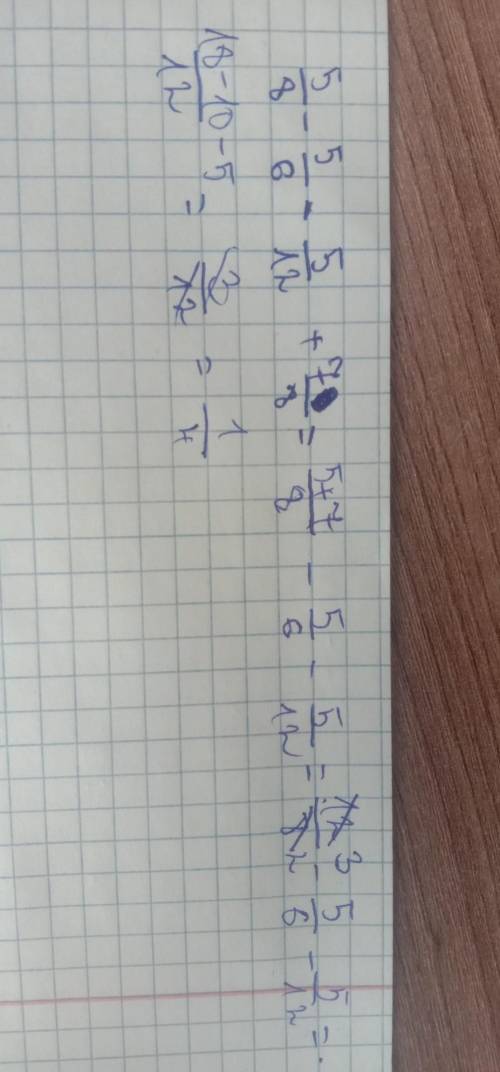 5/8 - 5/6 - 5/12 + 7/8 = (5+7)/8 - 5/6 - 5/12 = 12/8 3/2 - 5/6 - 5/12 =
(18-10-5)/12 = 3/12 = 1/4